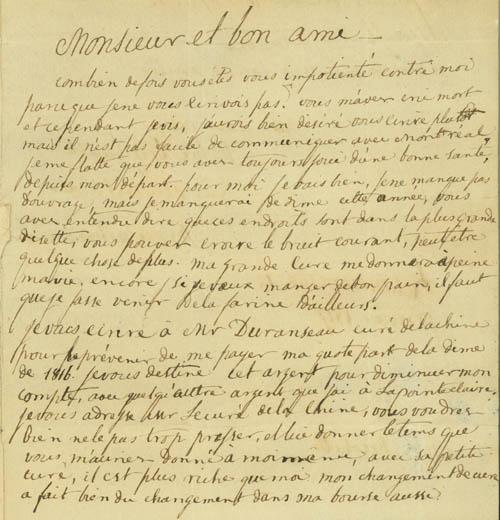 Monsieur et bon ami —
combien de fois vous êtes vous impatienté contre moi
parce que je ne vous écrivois pas? vous m'avez crû mort
et cependant je vis, j'aurois bien désiré vous écrire plutôt
mais il n'est pas facile de communiquer avec Montréal,
je me flatte que vous avez toujours joui d'une bonne santé,
depuis mon départ. pour moi je vais bien, je ne manque pas
d'ouvrage, mais je manquerai de dime cette année, vous
avez entendu dire que ces endroits sont dans la plus grande
disette, vous pouvez croire le bruit courant, peut être
quelque chose de plus. ma grande cure me donnera à peine
ma vie, encore si je veux manger de bon pain, il faut
que je fasse venir de la farine d'ailleurs.
Je vais écrire à Mr Duranseau curé de lachine
pour le prévenir de me payer ma quote part de la dime
de 1816. je vous destine cet argent pour diminuer mon
compte, avec quelqu'autre argent que j'ai à La pointe claire.
je vous adresse sur le curé de la Chine, vous voudrez
bien ne le pas trop presser, et lui donner le tems que
vous m'auriez donné a moi même, avec sa petite
cure, il est plus riche que moi mon changement de cure
a fait bien du changement dans ma bourse aussi.